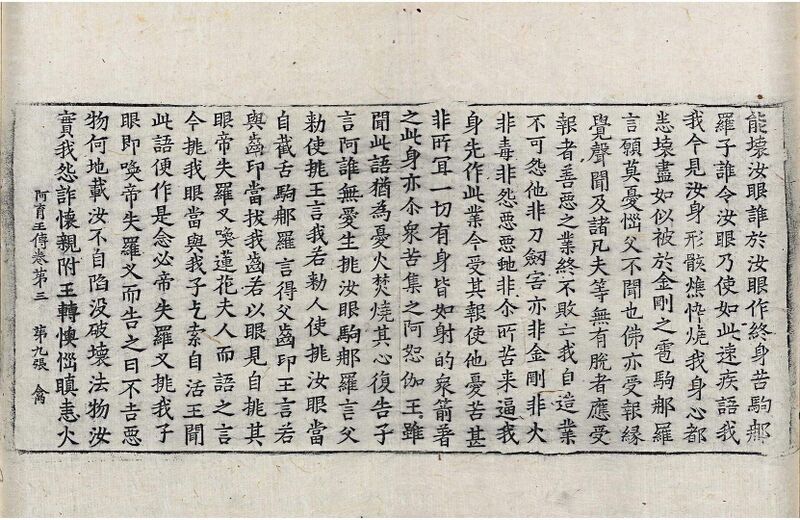 能壞汝眼誰於汝眼作終身苦駒那
羅子誰令汝眼乃使如此速疾語我
我今見汝身形骸燋悴燒我身心都
悉壞盡如似被於金剛之雹駒那羅
言願莫憂惱父不聞也佛亦受報緣
覺聲聞及諸凡夫等無有脫者應受
報者善惡之業終不敗亡我自造業
不可怨他非刀劔害亦非金剛非火
非毒非怨惡惡虵非尒所苦来逼我
身先作此業今受其報使他憂苦甚
非所冝一切有身皆如射的衆箭著
之此身亦尒衆苦集之阿恕伽王雖
聞此語猶為憂火焚燒其心復告子
言阿誰無愛生挑汝眼駒那羅言父
勑使挑王言我若勑人使挑汝眼當
自截舌駒那羅言得父齒印王言若
與齒印當拔我齒若以眼見自挑其
眼帝失羅叉喚蓮花夫人而語之言
今挑我眼當與我子乞索自活王聞
此語便作是念必帝失羅叉挑我子
眼即喚帝失羅叉而告之曰不吉惡
物何地載汝不自陷没破壞法物汝
實我怨詐懷親附王轉懊惱瞋恚火
阿育王傳卷第三　第九張　禽